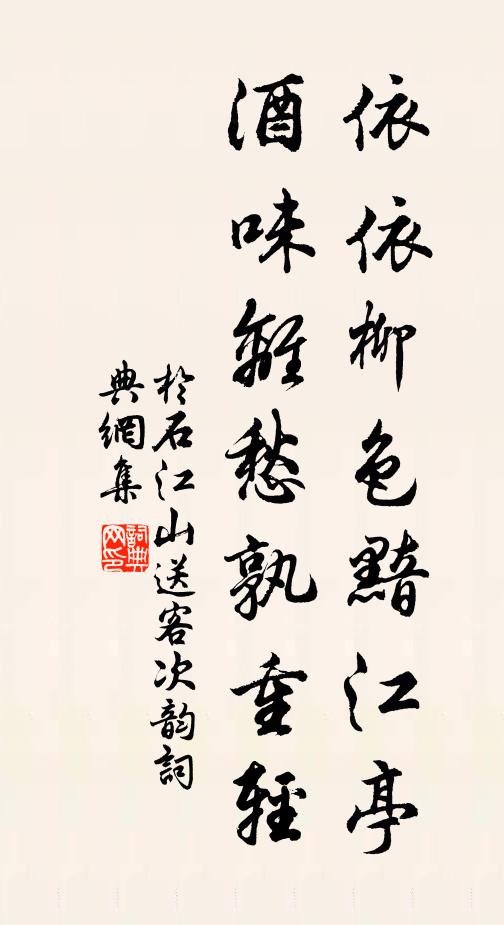 依依柳色黯江亭
酒味離愁孰重輕
於石江山送客次韵詞
典網集
詞典网印